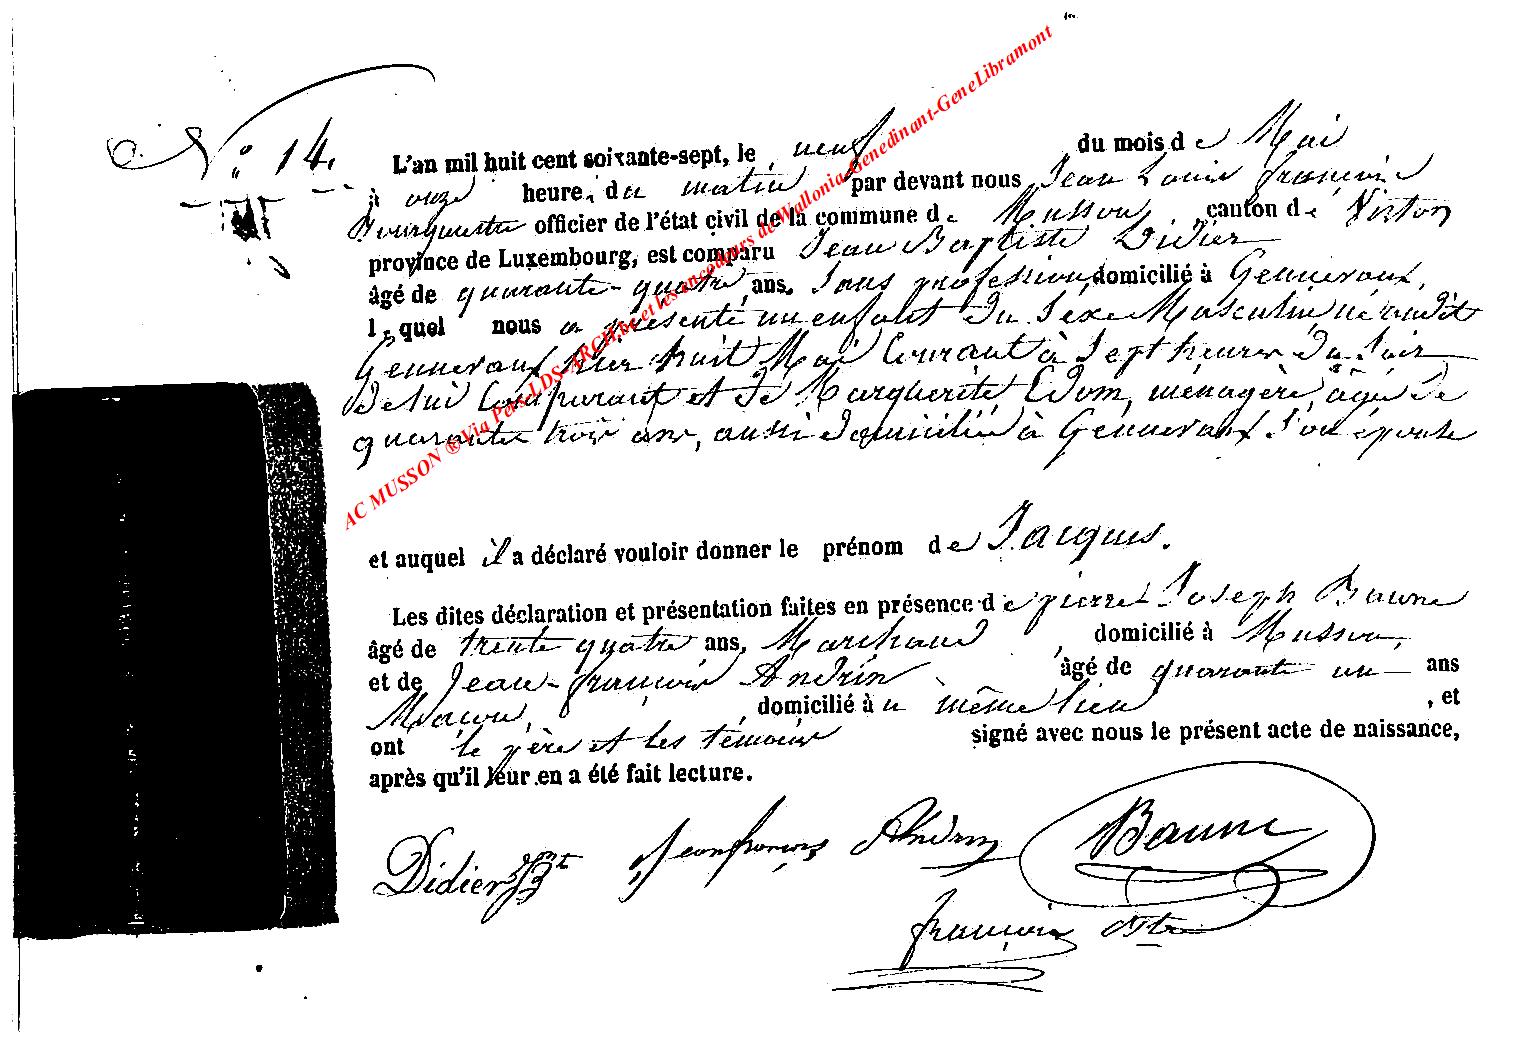 N° 14.
L'an mil huit cent soixante-sept, le neuf du mois de Mai
à onze heure. du matin par devant nous Jean Louis françois
officier de l'état civil de la commune de Musson, canton de Virton
province de Luxembourg, est comparu Jean Baptiste Didier
âgé de quarante-quatre ans. Sans profession, domicilié à Gennevaux,
lequel nous a présenté un enfant du Sexe Masculin né audit
Gennevaux hier huit Mai Courant à Sept heures du Soir
de lui Comparant et de Marguerite Edom, ménagère, âgée de
quarante trois ans, aussi domiciliée à Gennevaux Son épouse
et auquel il a déclaré vouloir donner le prénom de Jacques.
Les dites déclaration et présentation faites en présence de pierre Joseph Baune
âgé de trente quatre ans, Marchand, domicilié à Musson,
et de Jean-françois Andrin âgé de quarante un ans
Maçon, domicilié à u même lieu, et
ont le père et les témoins signé avec nous le présent acte de naissance,
après qu'il leur en a été fait lecture.
Didier JBt Jeanfrançois Andrin Baune
françois
AC MUSSON ® Via Pers-LDS-ARCH.be et les encodeurs de Wallonia-Genedinant-GeneLibramont